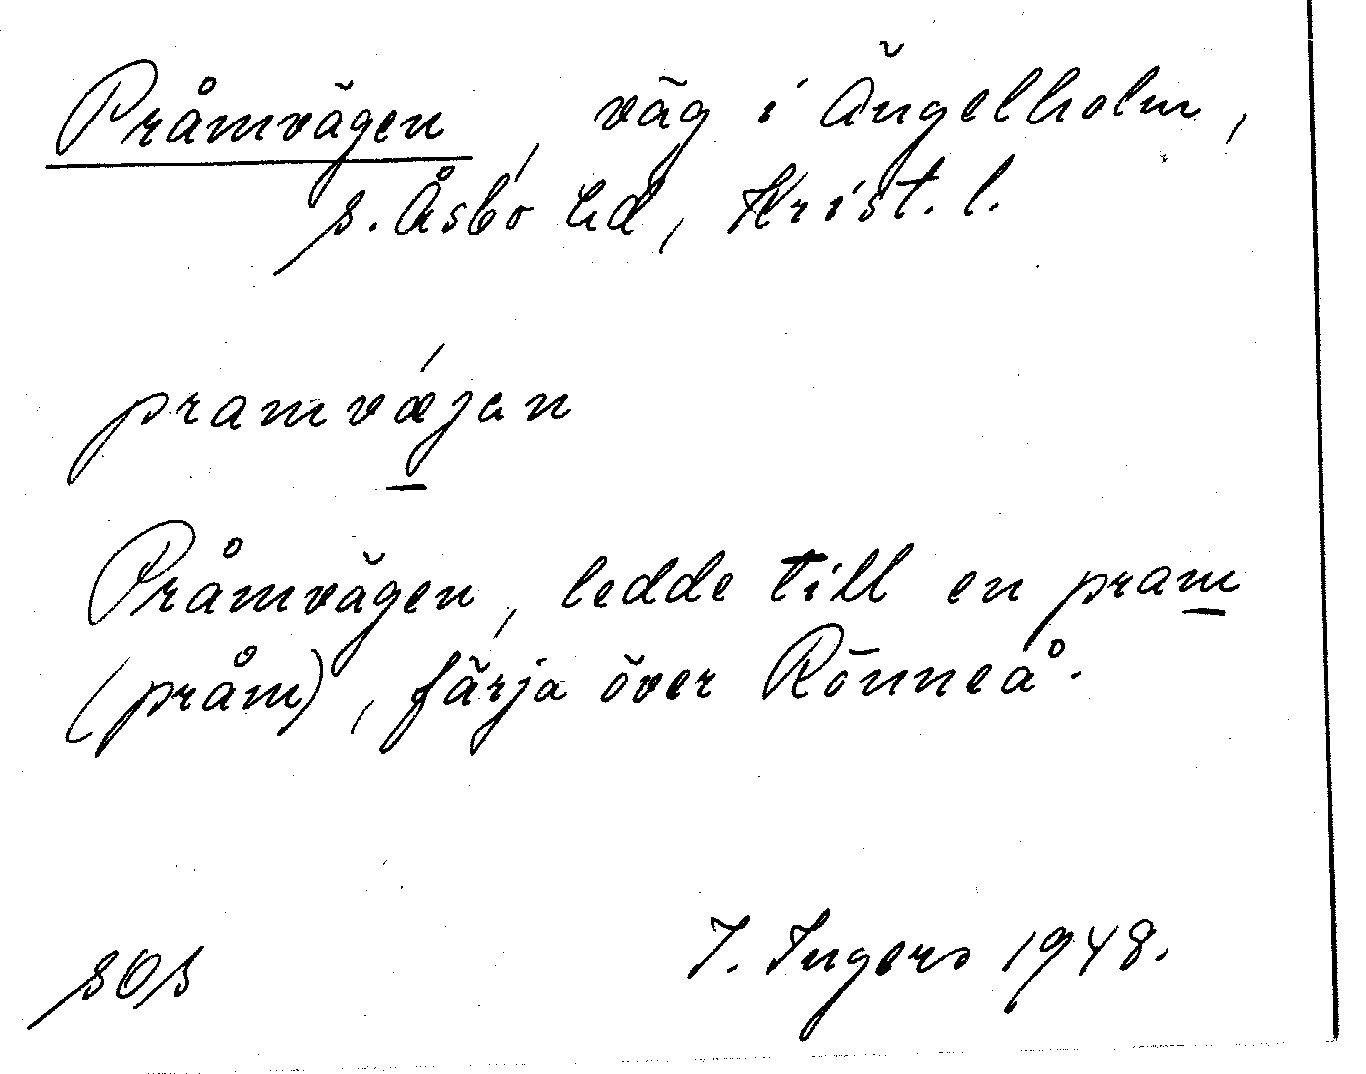 Pråmvägen, väg i Ängelholm,
s. Åsbo hd, Krist. l.
pramvǽjan
Pråmvägen, ledde till en pram
(pråm), färja över Rönneå.
SOS I. Ingers 1948.